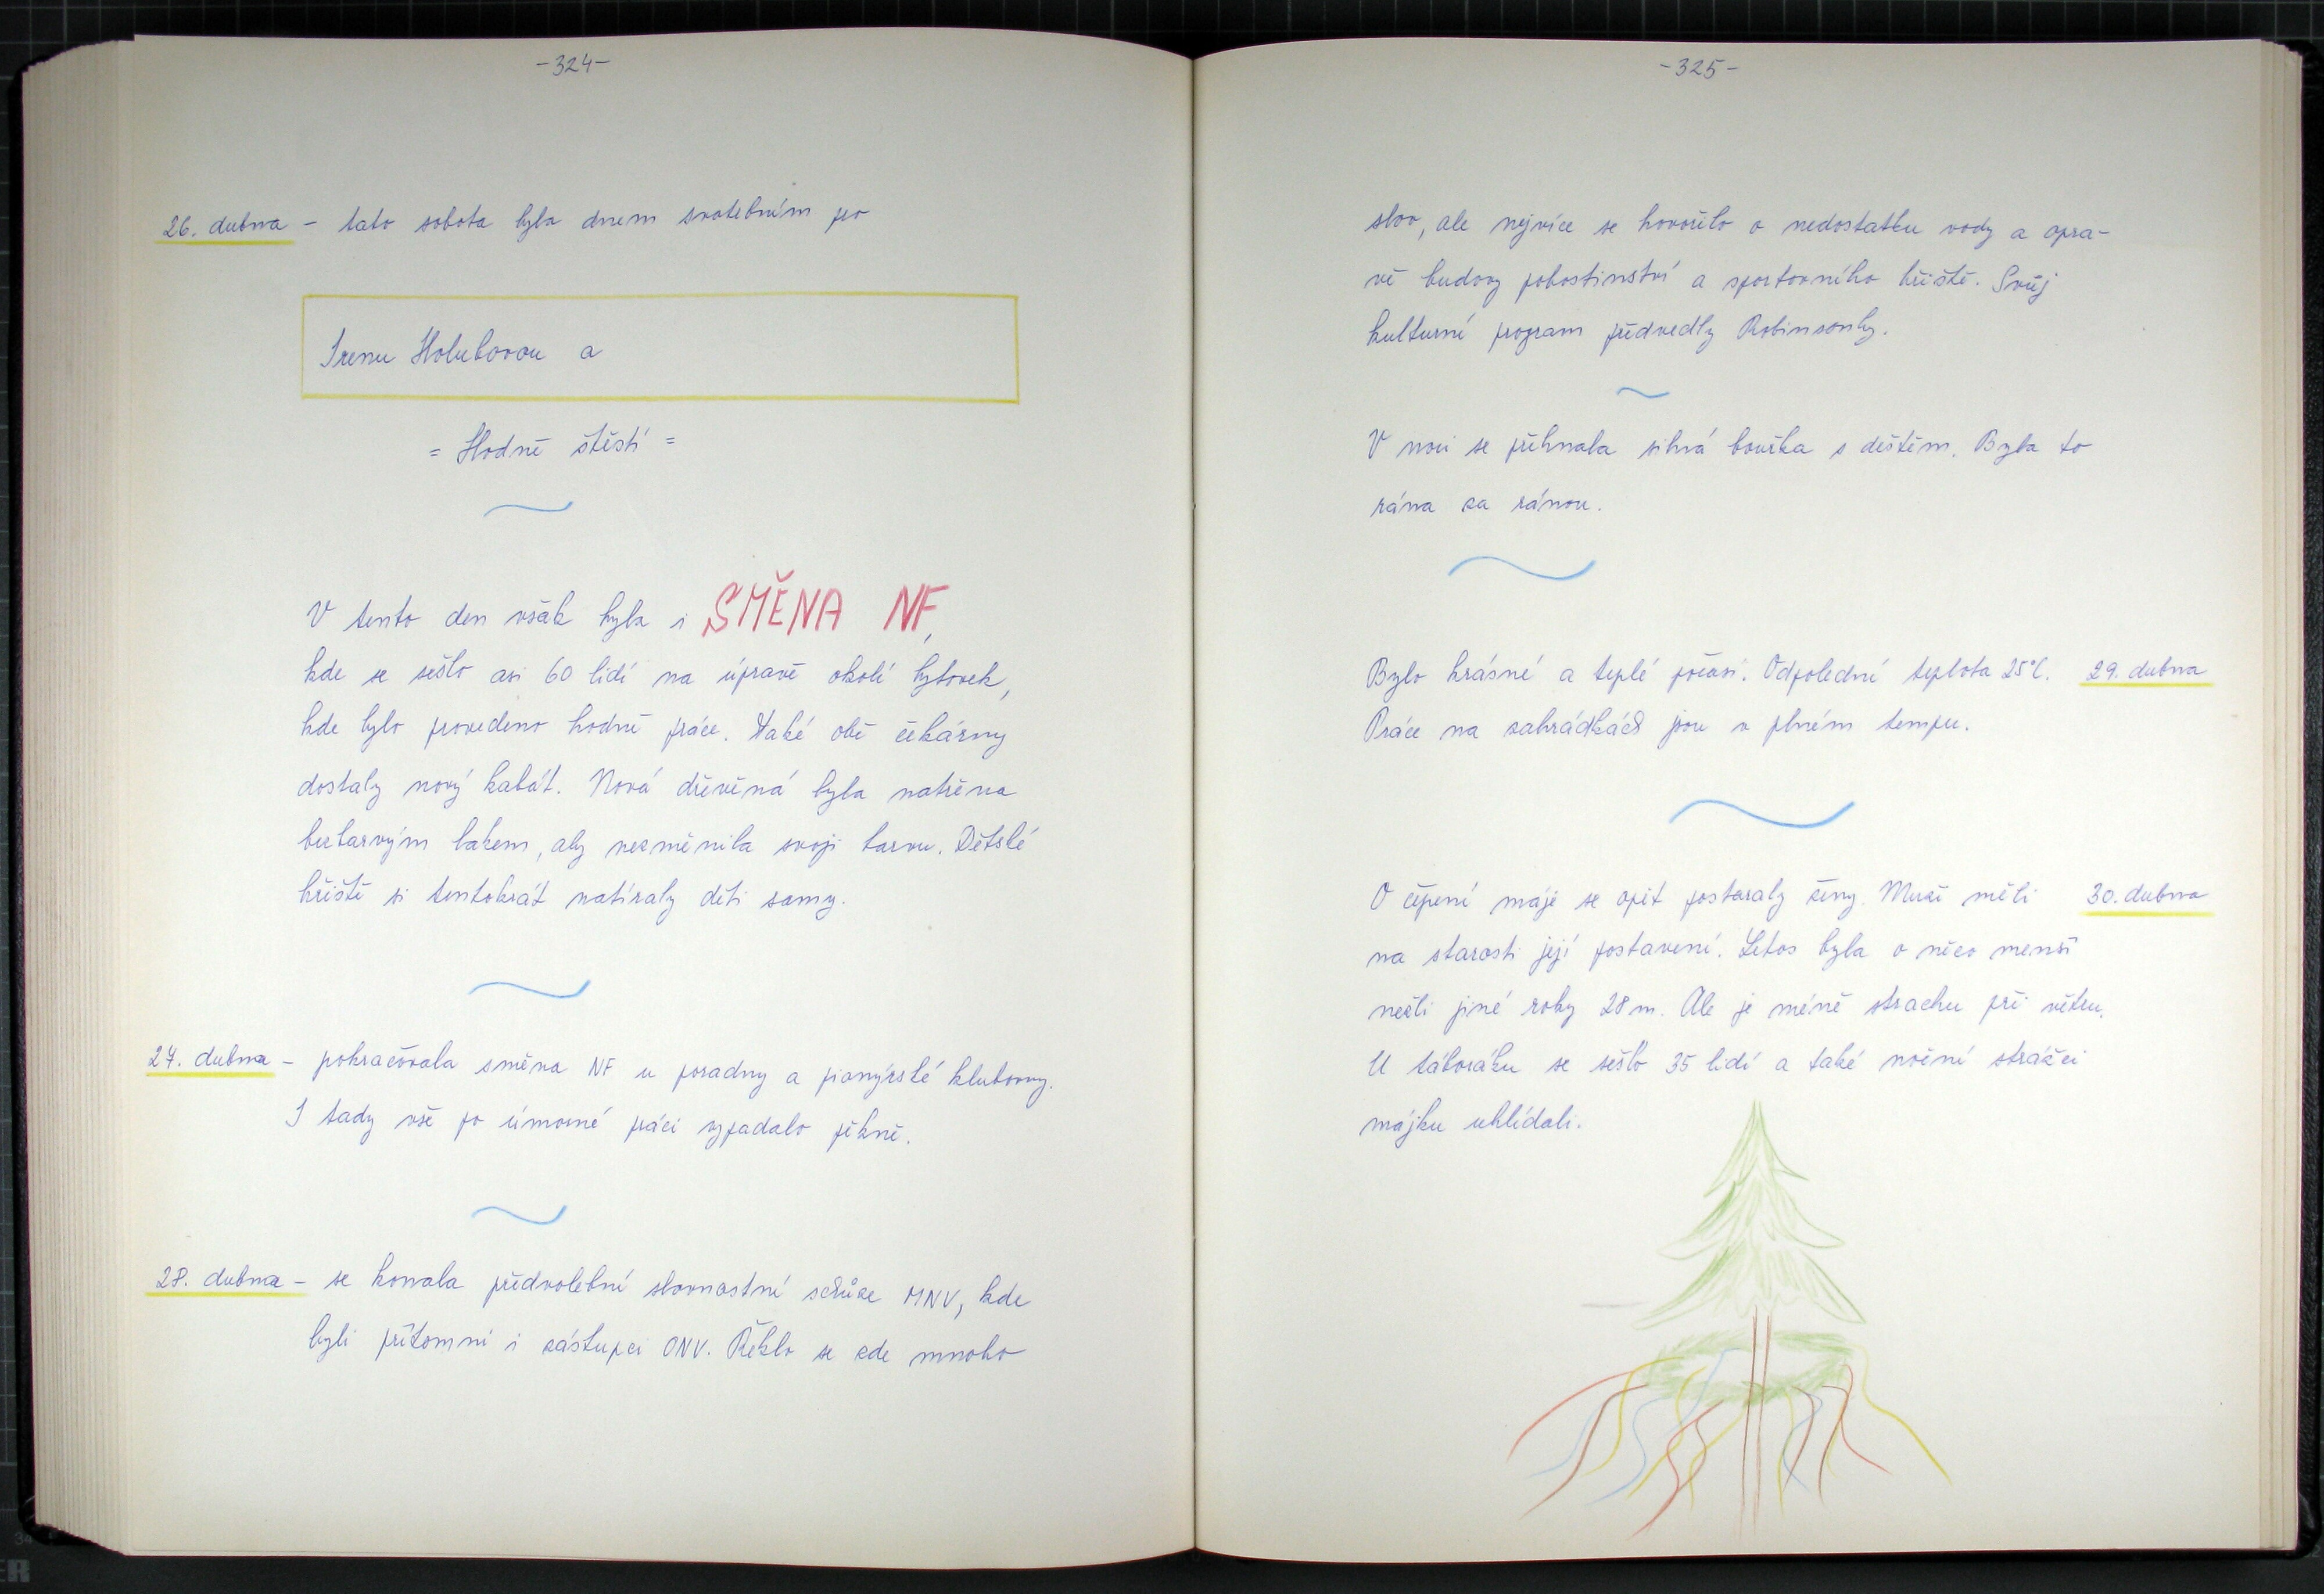 -324-
26. dubna - tato sobota byla dnem svatebním pro
Irenu Holubovou a
= Hodně štěstí =
V tento den však byla i SMĚNA NF,
kde se sešlo asi 60 lidí na úpravě okolí bytovek,
kde bylo provedeno hodně práce. Také obě čekárny
dostaly nový kabát. Nová dřevěná byla natřena
bezbarvým lakem, aby nezměnila svoji barvu. Dětské
hřiště si tentokrát natíraly děti samy.
27. dubna - pokračovala směna NF u poradny a pionýrské klubovny.
I tady vše po úmorné práci vypadalo pěkně.
28. dubna - se konala předvolební slavnostní schůze MNV, kde
byli přítomni i zástupci ONV. Řeklo se zde mnoho
-325-
slov, ale nejvíce se hovořilo o nedostatku vody a opra-
vě budovy pohostinství a sportovního hřiště. Svůj
kulturní program předvedly Robinsonky.
V noci se přehnala silná bouřka s deštěm. Byla to
rána za ránou.
Bylo krásné a teplé počasí. Odpolední teplota 25°C. 29. dubna
Práce na zahrádkách jsou v plném tempu.
O čepení máje se opět postaraly ženy. Muži měli 30. dubna
na starosti její postavení. Letos byla o něco menší
nežli jiné roky 28 m. Ale je méně strachu při větru.
U táboráku se sešlo 35 lidí a také noční strážci
májku uhlídali.